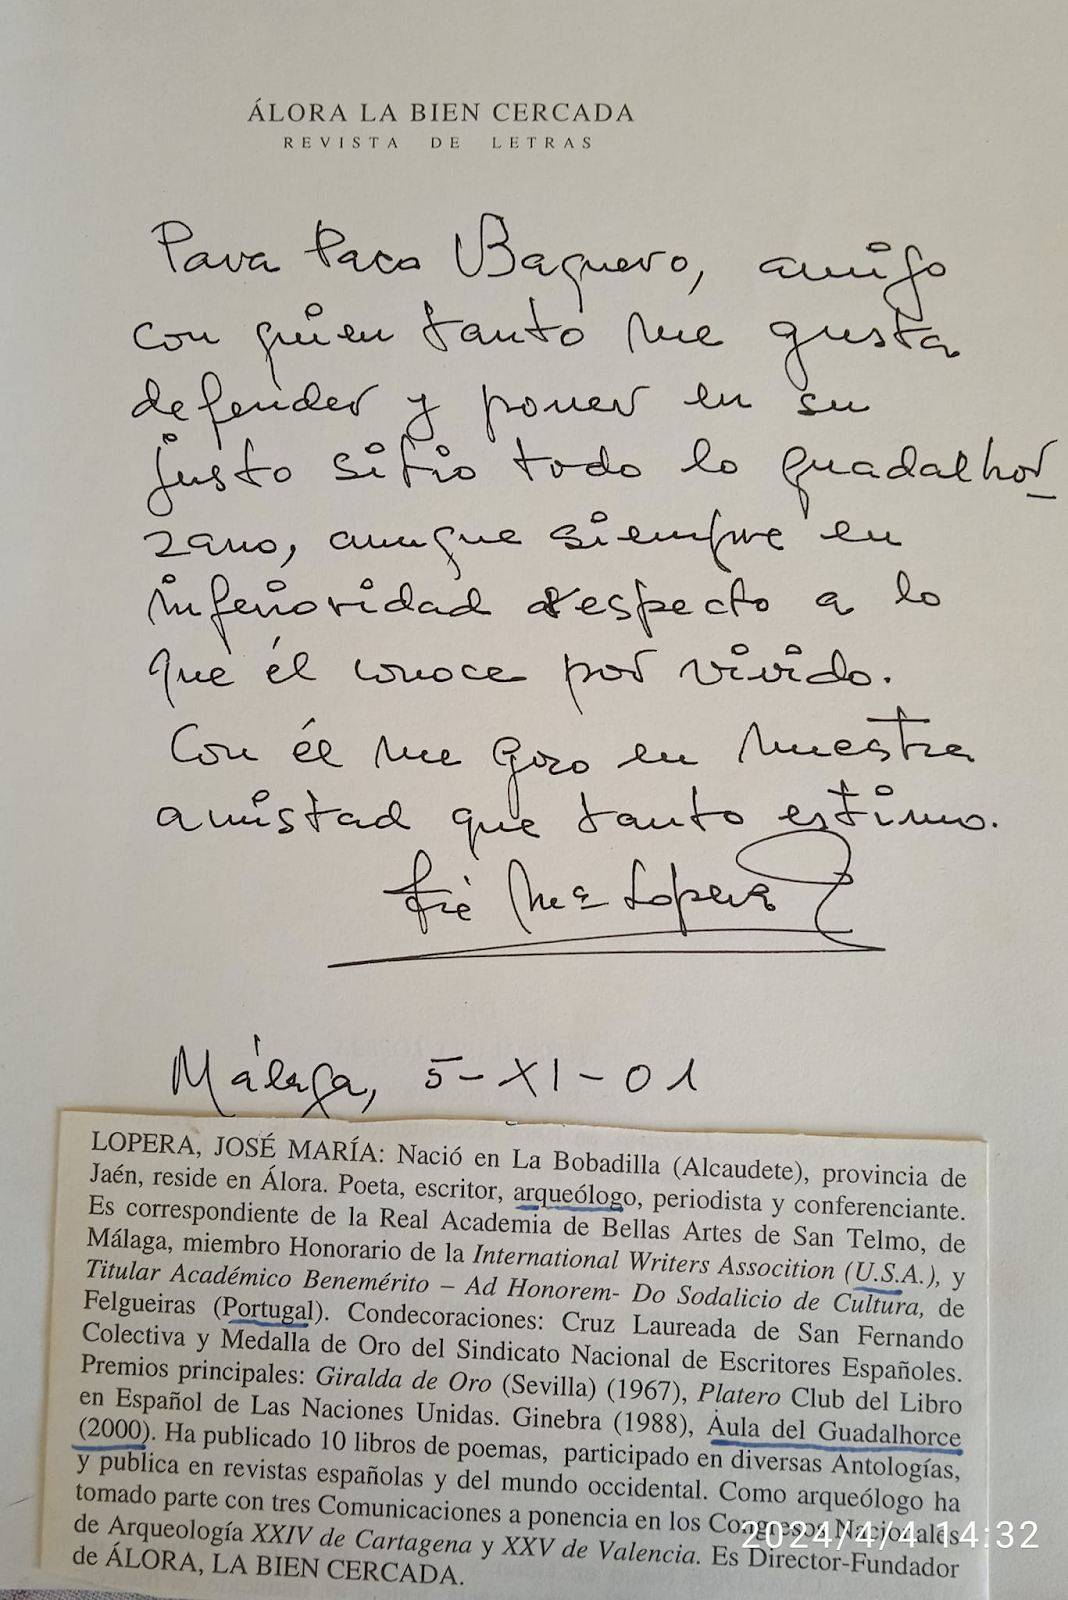 ÁLORA LA BIEN CERCADA
REVISTA DE LETRAS
Para Paco Baquero, amigo
con quien tanto me gusta
defender y poner en su
justo sitio todo lo guadalhor-
zano, aunque siempre en
inferioridad respecto a lo
que él conoce por vivido.
Con él me gozo en nuestra
amistad que tanto estimo.
José Mª Lopera
Málaga, 5-XI-01
LOPERA, JOSÉ MARÍA: Nació en La Bobadilla (Alcaudete), provincia de
Jaén, reside en Álora. Poeta, escritor, arqueólogo, periodista y conferenciante.
Es correspondiente de la Real Academia de Bellas Artes de San Telmo, de
Málaga, miembro Honorario de la International Writers Assocition (U.S.A.), y
Titular Académico Benemérito – Ad Honorem- Do Sodalicio de Cultura, de
Felgueiras (Portugal). Condecoraciones: Cruz Laureada de San Fernando
Colectiva y Medalla de Oro del Sindicato Nacional de Escritores Españoles.
Premios principales: Giralda de Oro (Sevilla) (1967), Platero Club del Libro
en Español de Las Naciones Unidas. Ginebra (1988), Aula del Guadalhorce
(2000). Ha publicado 10 libros de poemas, participado en diversas Antologías,
y publica en revistas españolas y del mundo occidental. Como arqueólogo ha
tomado parte con tres Comunicaciones a ponencia en los Congresos Nacionales
de Arqueología XXIV de Cartagena y XXV de Valencia. Es Director-Fundador
de ÁLORA, LA BIEN CERCADA.
2024/4/4 14:32